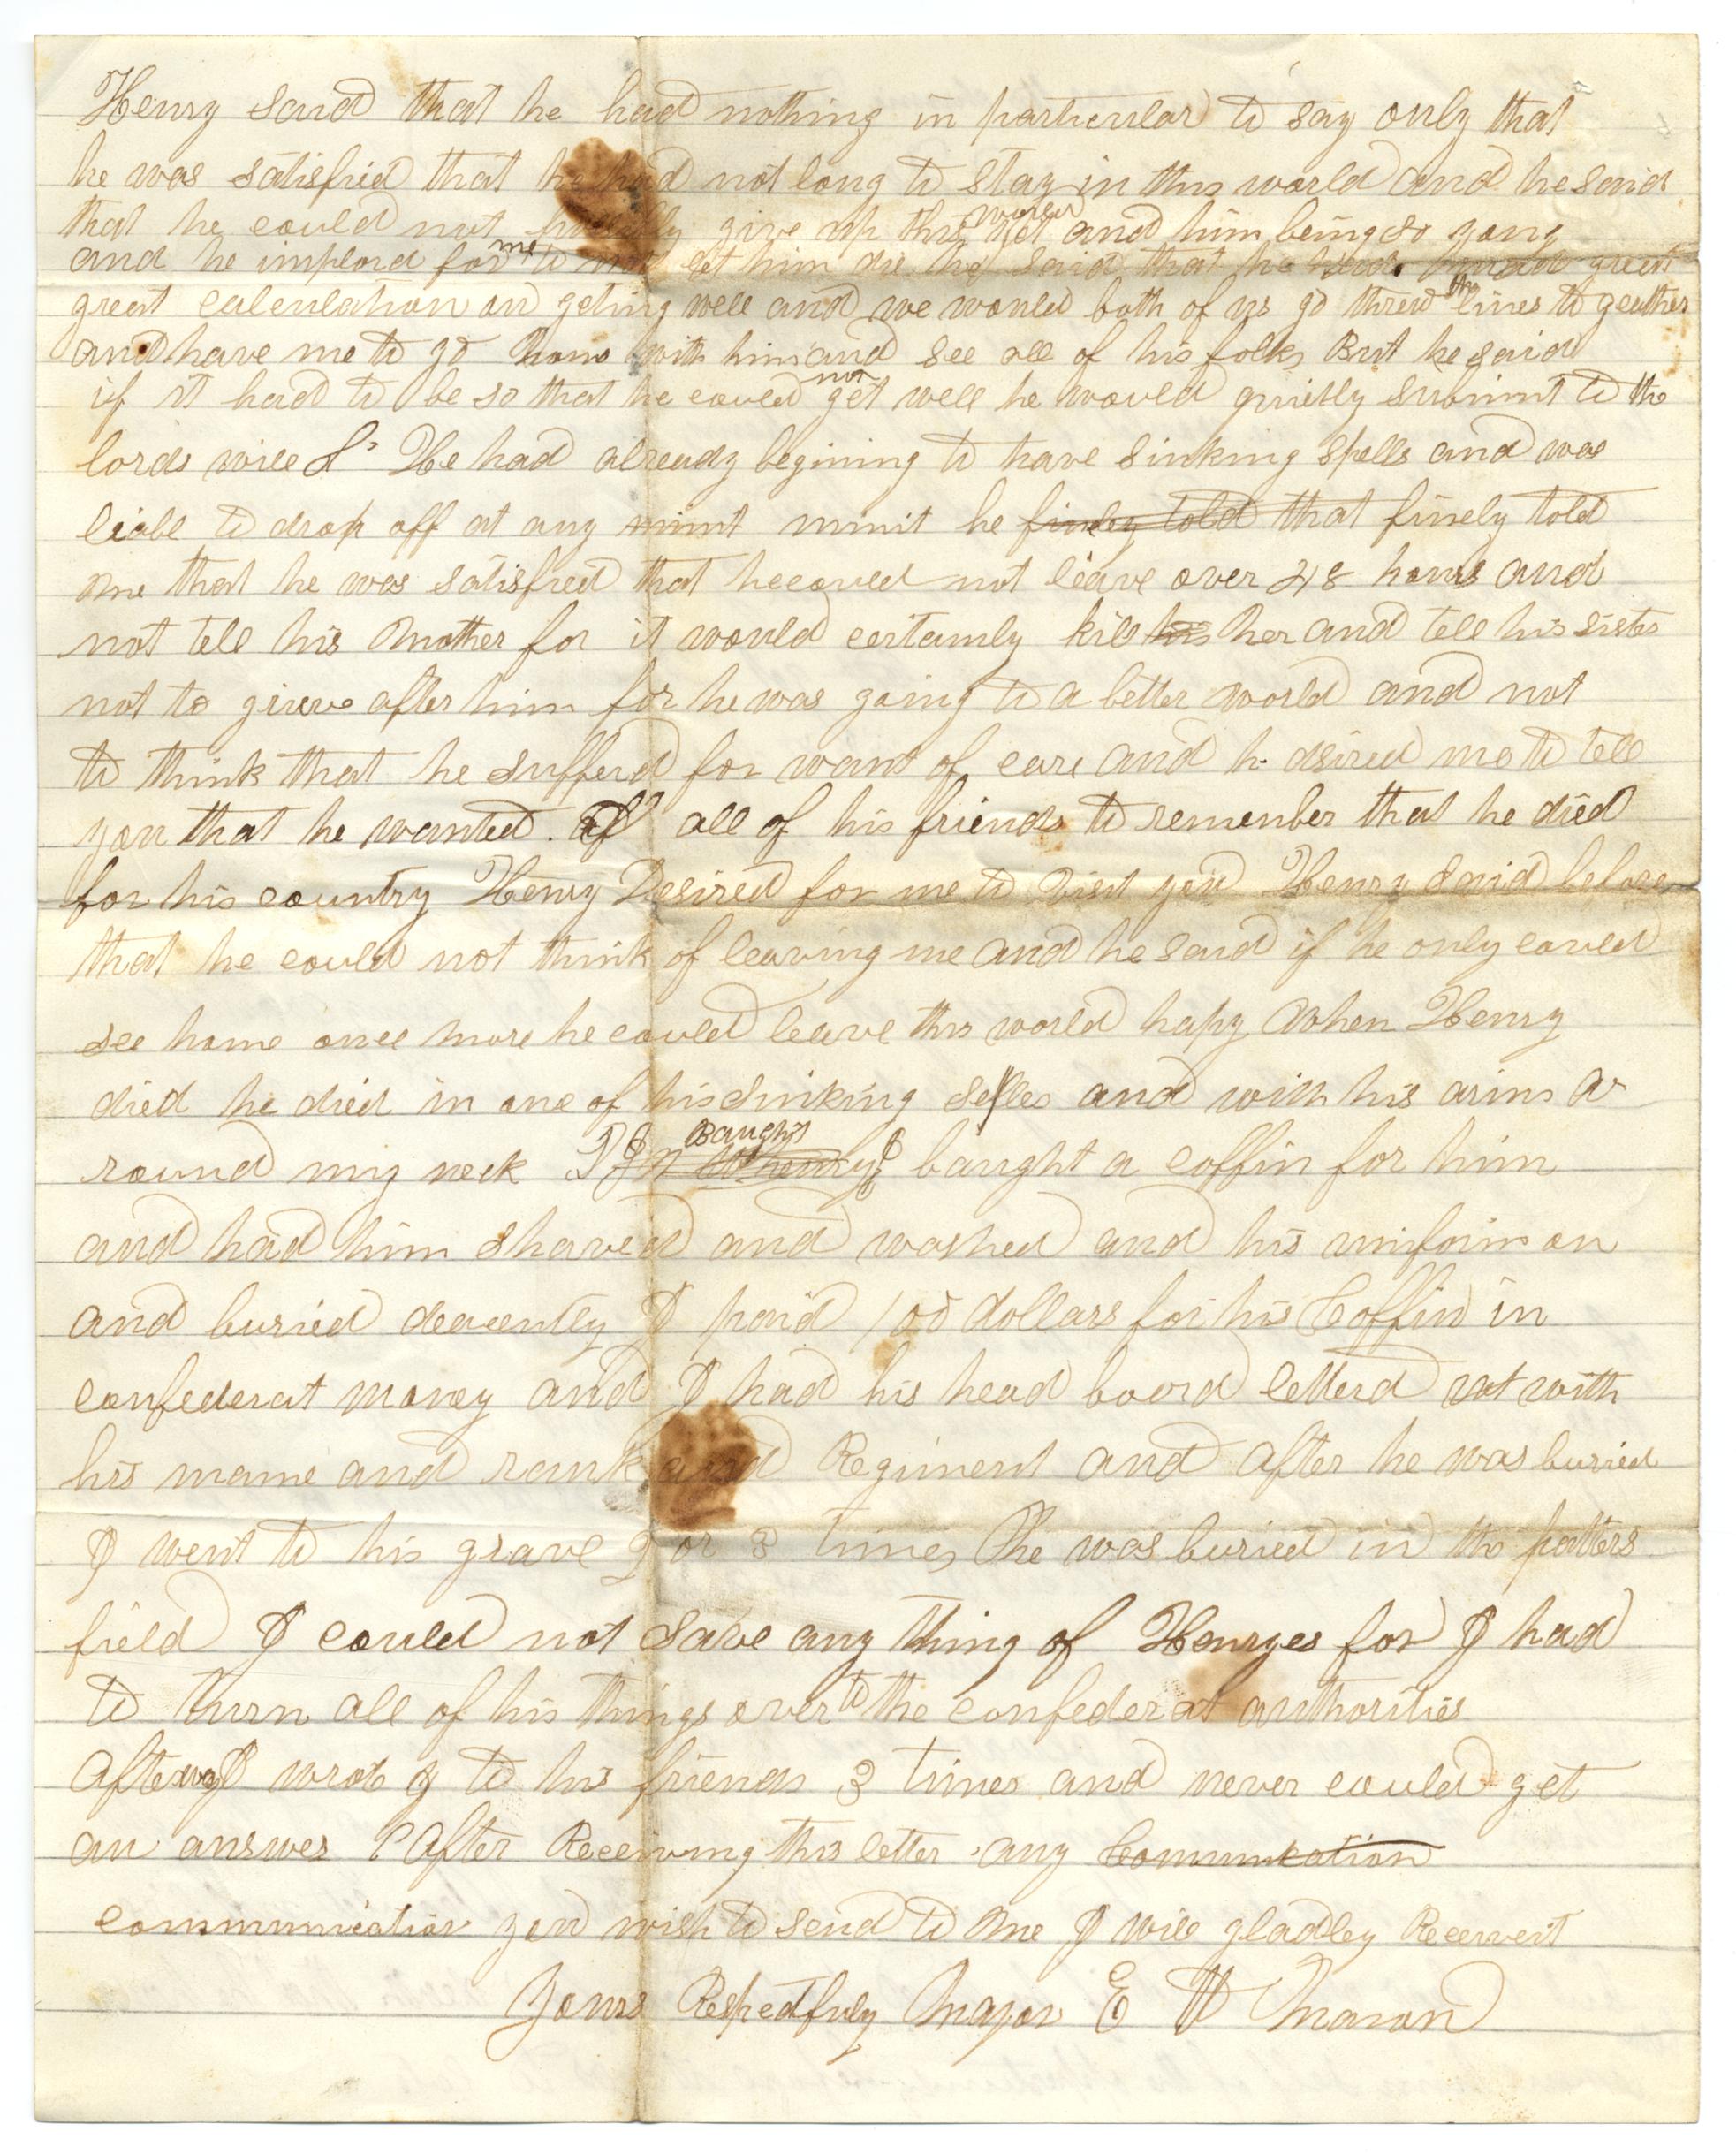 Henry said that he had nothing in particular to say only that
he was satisfied that he had not long to stay in this world and he said
that he could not give up this world yet and him being so yong
and he implord for me to not let him die he said that he had great
great calculation on geting well and we would both of us go threw the lines to geather
and have me to go home with him and see all of his folks But he said
if it had to be so that he could not get well he would quietly submit to the
lords will He had already begining to have sinking spells and was
liabl to drop off at any mint minit he finley told that finely told
me that he was satisfied that he could not leave over 48 hours and
not tell his Mother for it would certainly kill his her and tell his sister
not to grieve after him for he was going to a better world and not
to think that he sufferd for want of care and he desired me to tell
you that he wanted all of his friends to remember that he died
for his country Henry Desired for me to visit you Henry said before
that he could not think of leaving me and he said if he only could
see home once more he could leave this world hapy When Henry
died he died in one of his sinking selles and with his arms a
round my neck I Baught baught a coffin for him
and had him shaved and washed and his uniform on
and buried deacently I paid 100 dollars for his Coffin in
confederat money and I had his head board letterd with
his name and rank and Regiment and after he was buried
I went to his grave 2 or 3 times he was buried in the potters
field I could not save any thing of Henryes for I had
to turn all of his things over to the confederat authorities
After I wrote to his friends 3 times and never could get
an answer After Receiving this letter any Communication
communication you wish to send to me I will gladley Receive it
Yours Respectfuly Major E W Mason